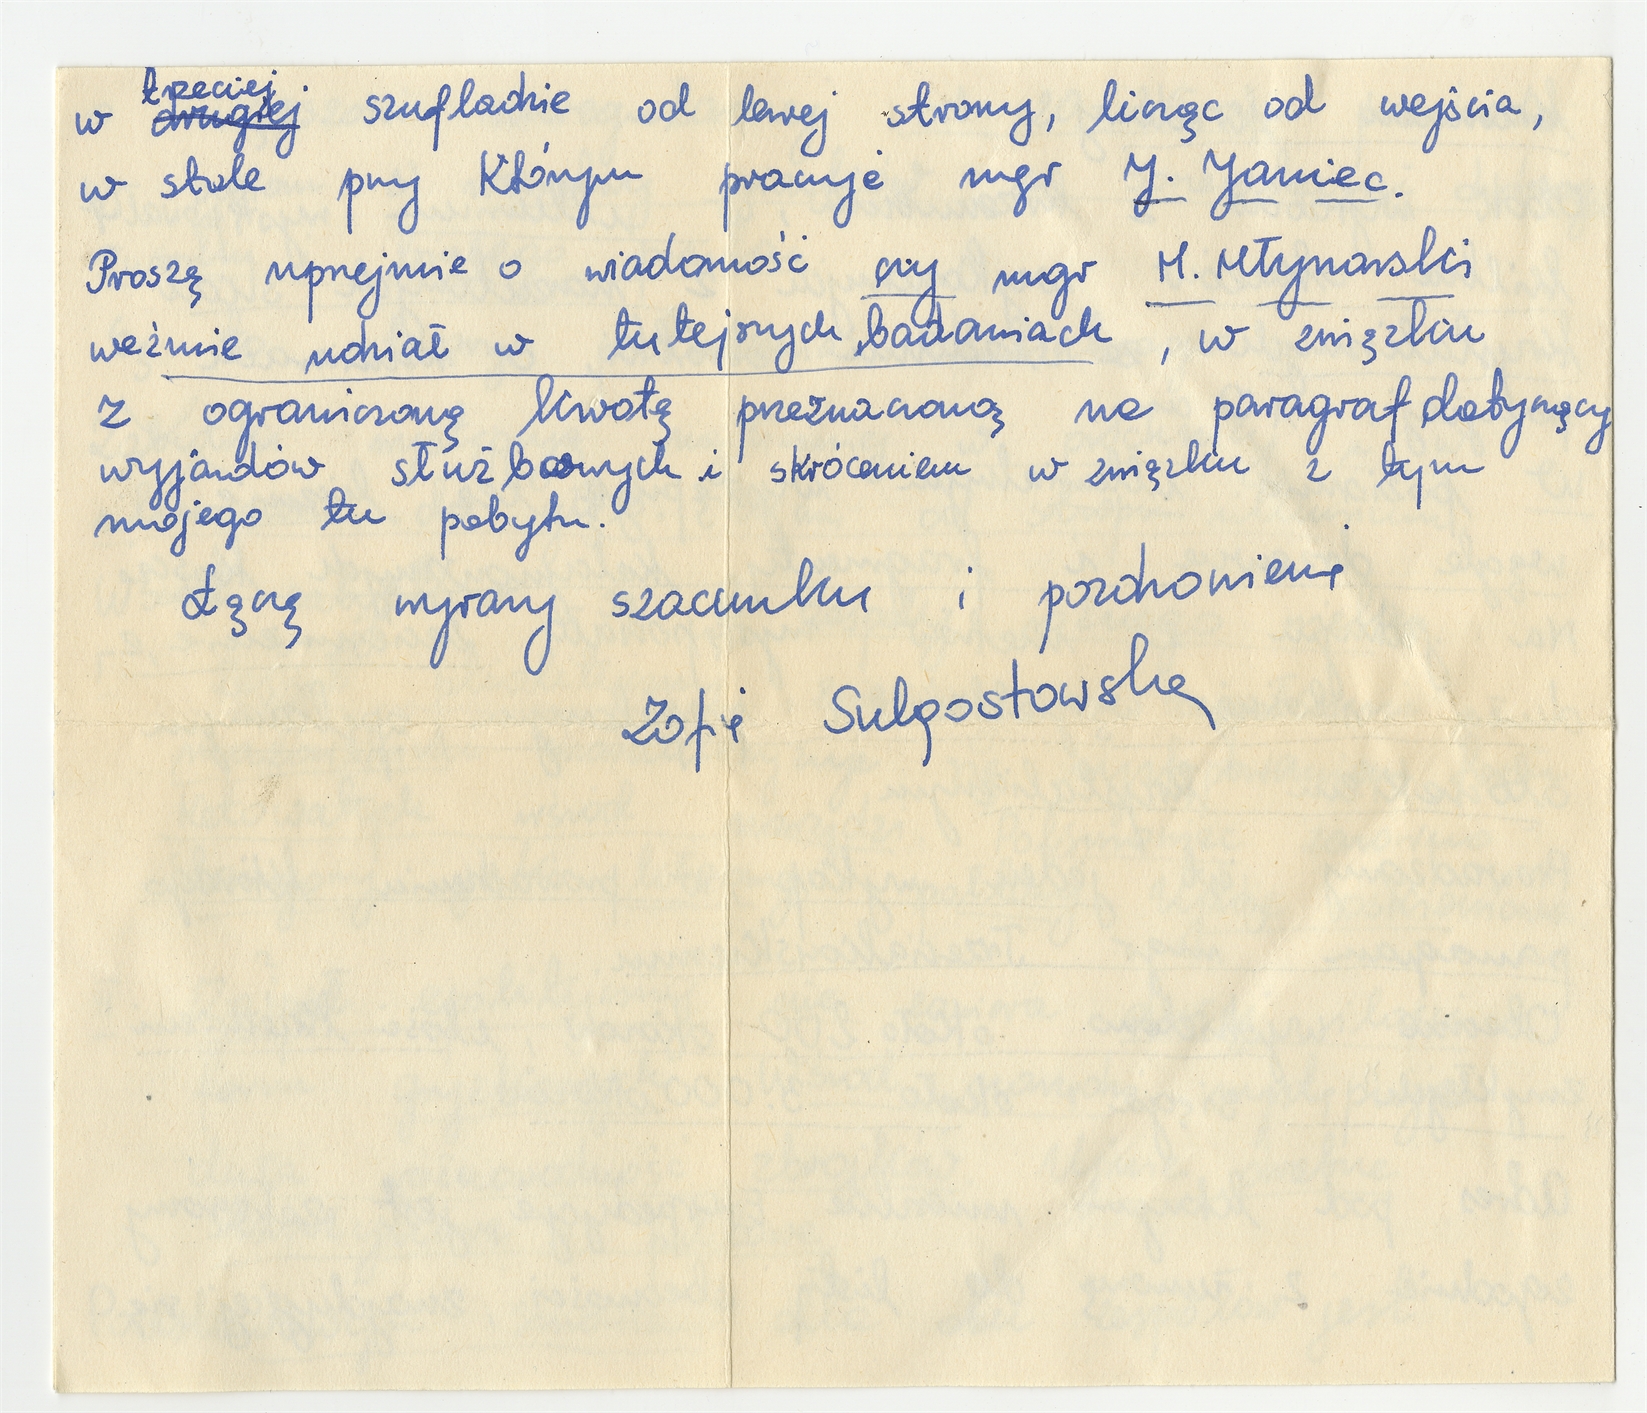 w drugiej trzeciej szufladzie od lewej strony, licząc od wejścia,
w stole przy którym pracuje mgr J. Janiec.
Proszę uprzejmie o wiadomość czy mgr M. Młynarski
weźmie udział w tutejszych badaniach, w związku
z ograniczoną kwotą przeznaczoną na paragraf dotyczący
wyjazdów służbowych i skróceniem w związku z tym
mojego tu pobytu.
Łączę wyrazy szacunku i pozdrowienia
Zofia Sulgostowska